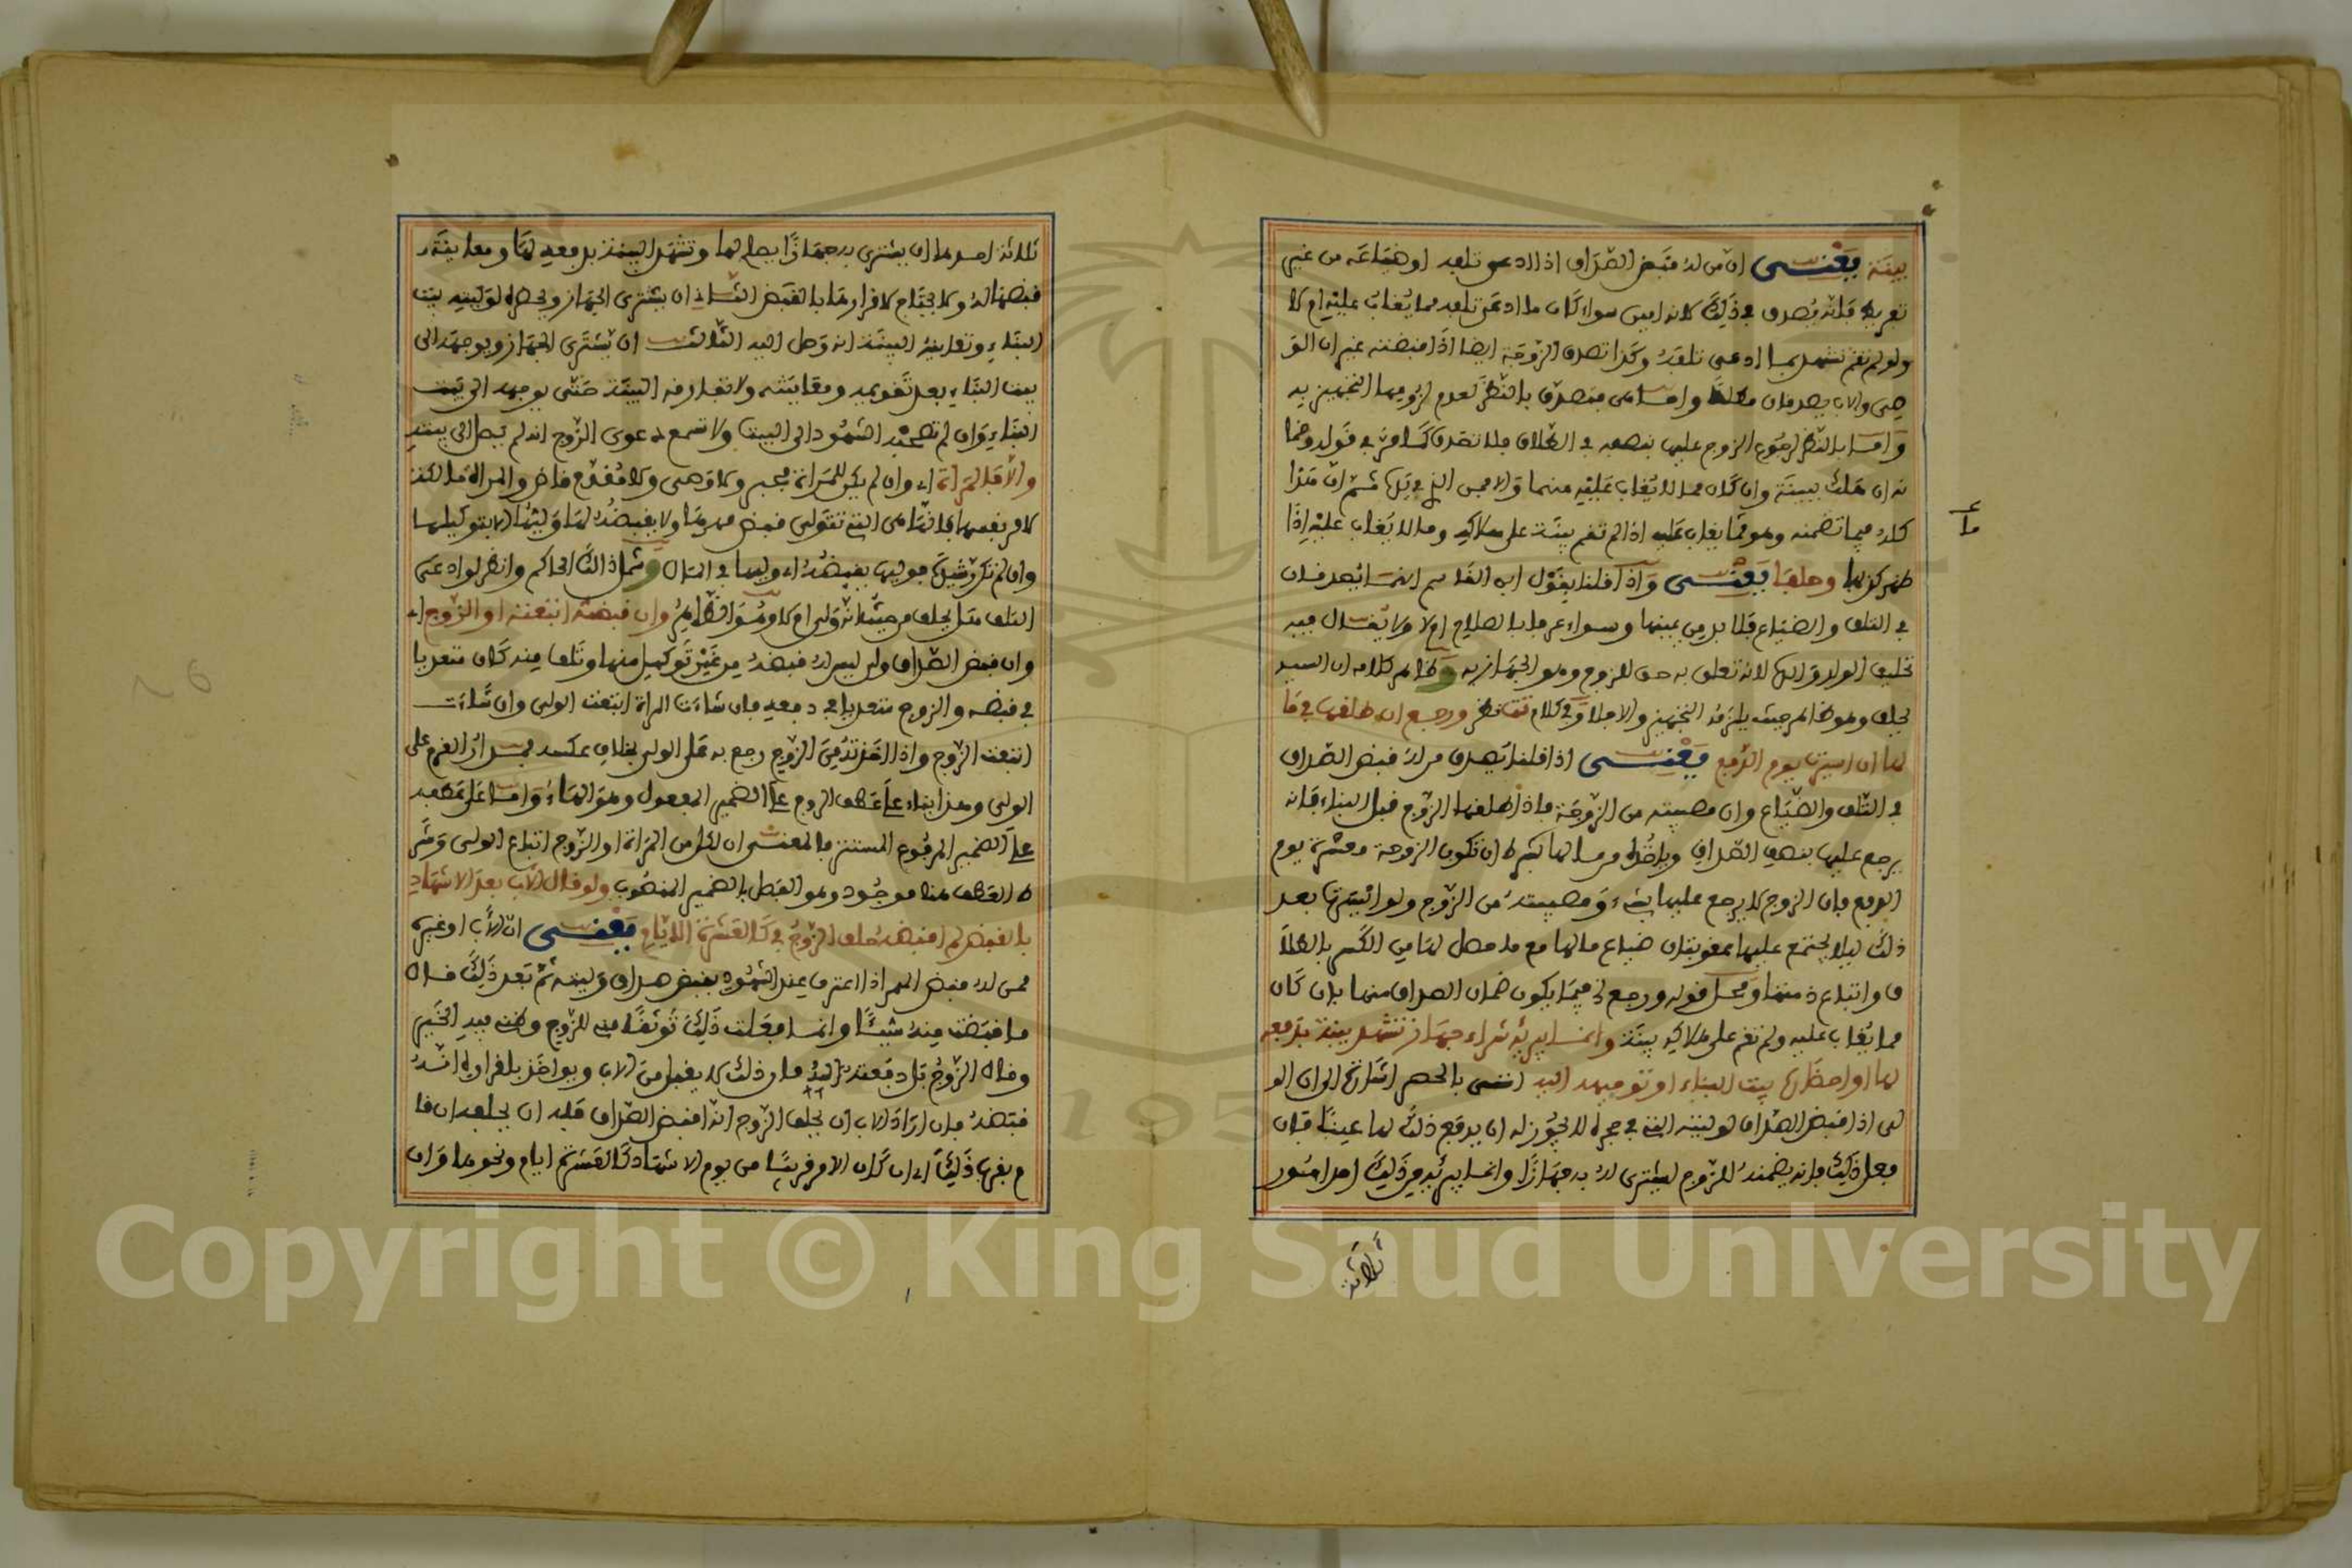 بينة يعني ان من له قبض الصداق اذا ادعى تلفه او ضياعه من غير
تفريط فانه يصدق في ذلك لانه امين سواء كان ما ادعى تلفه مما يغاب عليه ام لا
ولو لم تقم تشهد بما ادعى تلفه وكذا تصدق الزوجة ايضا اذا قبضته غير ان الو
صي والاب يصدقان مطلقا واما هي فتصدق بالنظر لعدم لزومها التجهيز به
واما بالنظر لرجوع الزوج عليها بنصفه في الطلاق فلا تصدق كما مر في قوله وضما
نه ان هلك ببينة وان كان مما لا يغاب عليه منهما والا فمن الذي في يده ثم ان هذا
كله فيما تضمنه وهو مما يغاب عليه اذا لم تقم بينة على هلاكه وما لا يغاب عليه اذا
ظهر كذبها وحلفا يعني واذا قلنا بقول ابن القاسم انهما يصدقان
في التلف والضياع فلا بد من يمينها وسواء عرفا بالصلاح ام لا ولا يقال فيه
تحليف الولد والده لانه تعلق به حق للزوج وهو الجهاز به وظاهر كلامه ان السيد
يحلف وهو ظاهر حيث يلزمه التجهيز والا فلا وفي كلام تت نظر ورجع ان طلقها في ما
لها ان ايسرت يوم الدفع يعني اذا قلنا يصدق من له قبض الصداق
في التلف والضياع وان مصيبته من الزوجة فاذا طلقها الزوج قبل البناء فانه
يرجع عليها بنصف الصداق وياخذه من مالها بشرط ان تكون الزوجة موسرة يوم
الدفع فان الزوج لا يرجع عليها بشيء ومصيبته من الزوج ولو ايسرت بعد
ذلك ليلا يجتمع عليها عقوبتان ضياع مالها مع ما حصل لها من الكسر بالطلا
ق واتباع ذمتها ومحل قوله ورجع الخ فيما يكون ضمان الصداق منها بان كان
مما يغاب عليه ولم تقم على هلاكه بينة وانما يبريه شراء جهاز تشهد بينة بدفعه
لها او احضاره بيت البناء او توجيهه اليه اتى بالحصر اشارة الى ان الو
لي اذا قبض الصداق لوليته التي في حجره لا يجوز له ان يدفع ذلك لها عينا فان
فعل ذلك فانه يضمنه للزوج ليشتري له به جهازا وانما يبريه من ذلك احد امور
ما
ثلاثة
ثلاثة احدها ان يشتري به جهازا يصلح لها وتشهد البينة بدفعه لها ومعاينة
قبضها له ولا يحتاج لاقرارها بالقبض الثاني ان يشتري الجهاز ويحضره لوليته بيت
البناء وتعاينه البينة انه وصل اليه الثالث ان يشتري الجهاز ويوجهه الى
بيت البناء بعد تقويمه ومعاينته ولا تفارقه البينة حتى يوجهه الى بيت
البناء وان لم تصحبه الشهود الى البيت ولا تسمع دعوى الزوج انه لم يصل الى بيته
والا فالمراة اي وان لم يكن للمراة مجبر ولا وصي ولا مقدم قاض والمراة مالكة
لامر نفسها فانها هي التي تتولى قبض مهرها ولا يقبضه لها وليها الا بتوكيلها
وان لم تكن رشيدة فوليها يقبضه اي وليها في المال وشمل ذلك الحاكم وانظر لو ادعى
التلف هل يحلف من حيث انه ولي ام لا وهو الظاهر وان قبضه اتبعته او الزوج اي
وان قبض الصداق ولي ليس له قبضه من غير توكيل منها وتلف منه كان متعديا
في قبضه والزوج متعديا في دفعه فان شاءت المراة اتبعت الولي وان شاءت
اتبعت الزوج واذا اخذته من الزوج رجع به على الولي بخلاف عكسه فقرار الغرم على
الولي وهذا بناء على عطف الزوج على الضمير المفعول وهو الهاء واما على عطفه
على الضمير المرفوع المستتر فالمعنى ان لكل من المراة او الزوج اتباع الولي وشر
ط العطف هنا موجود وهو الفصل بالضمير المنصوب ولو قال الاب بعد الاشهاد
بالقبض لم اقبضه حلف الزوج في كالعشرة الايام يعني ان الاب او غيره
ممن له قبض المهر اذا اعترف عند الشهود بقبض صداق وليته ثم بعد ذلك قال
ما قبضت منه شيئا وانما فعلت ذلك توثقا مني للزوج وظني فيه الخير
وقال الزوج بل دفعته اليه فان ذلك لا يقبل من الاب ويواخذ باقراره انه
قبضه فان اراد الاب ان يحلف الزوج انه اقبض الصداق فله ان يحلفه ان قا
م بقرب ذلك اي ان كان الامر قريبا من يوم الاشهاد كالعشرة ايام ونحوها وان
Copyright © King Saud University